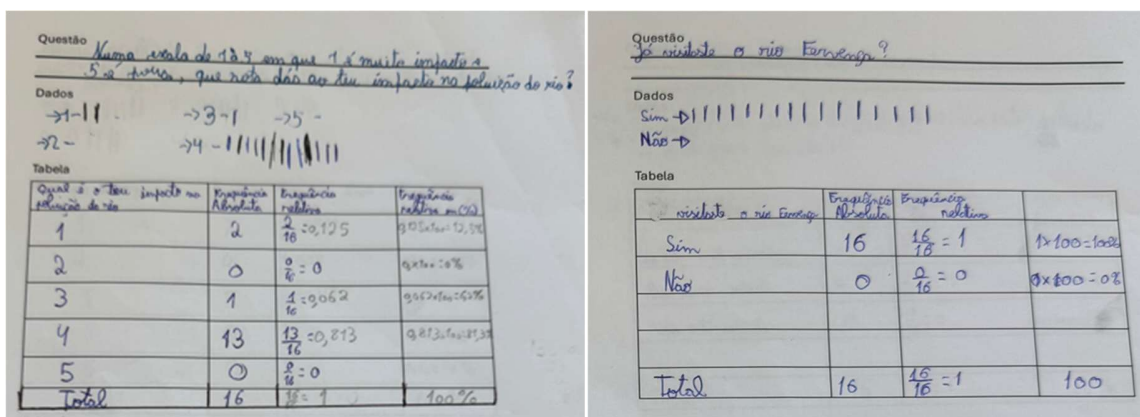 Questão
Numa escala de 1 a 5 em que 1 é muito impacto e
5 é pouco, que nota dás ao teu impacto na poluição do rio?
Dados
→1-|| →3-| →5-
→2- →4-|||||||||||||
Tabela
Qual é o teu impacto na poluição do rio Frequência Absoluta Frequência relativa Frequência relativa em (%)
1 2 2/16=0,125 0,125x100=12,5%
2 0 0/16=0 0x100=0%
3 1 1/16=0,062 0,062x100=6,2%
4 13 13/16=0,813 0,813x100=81,3%
5 0 0/16=0
Total 16 16/16=1 100%
Questão
Já visitaste o rio Fervença?
Dados
Sim→||||||||||||||||
Não→
Tabela
visitaste o rio Fervença Frequência Absoluta Frequência relativa
Sim 16 16/16=1 1x100=100%
Não 0 0/16=0 0x100=0%
Total 16 16/16=1 100